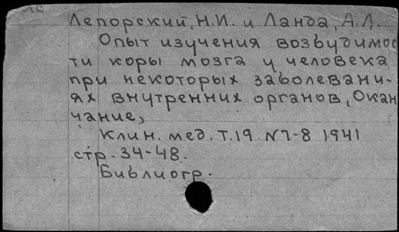 Лепорский, Н.И. и Ланда, А.Л.
Опыт изучения возбудимос
ти коры мозга у человека
при некоторых заболевани-
ях внутренних органов, Окан
чание,
Клин. мед. т.19 №7-8 1941
стр. 34-48.
Библиогр.